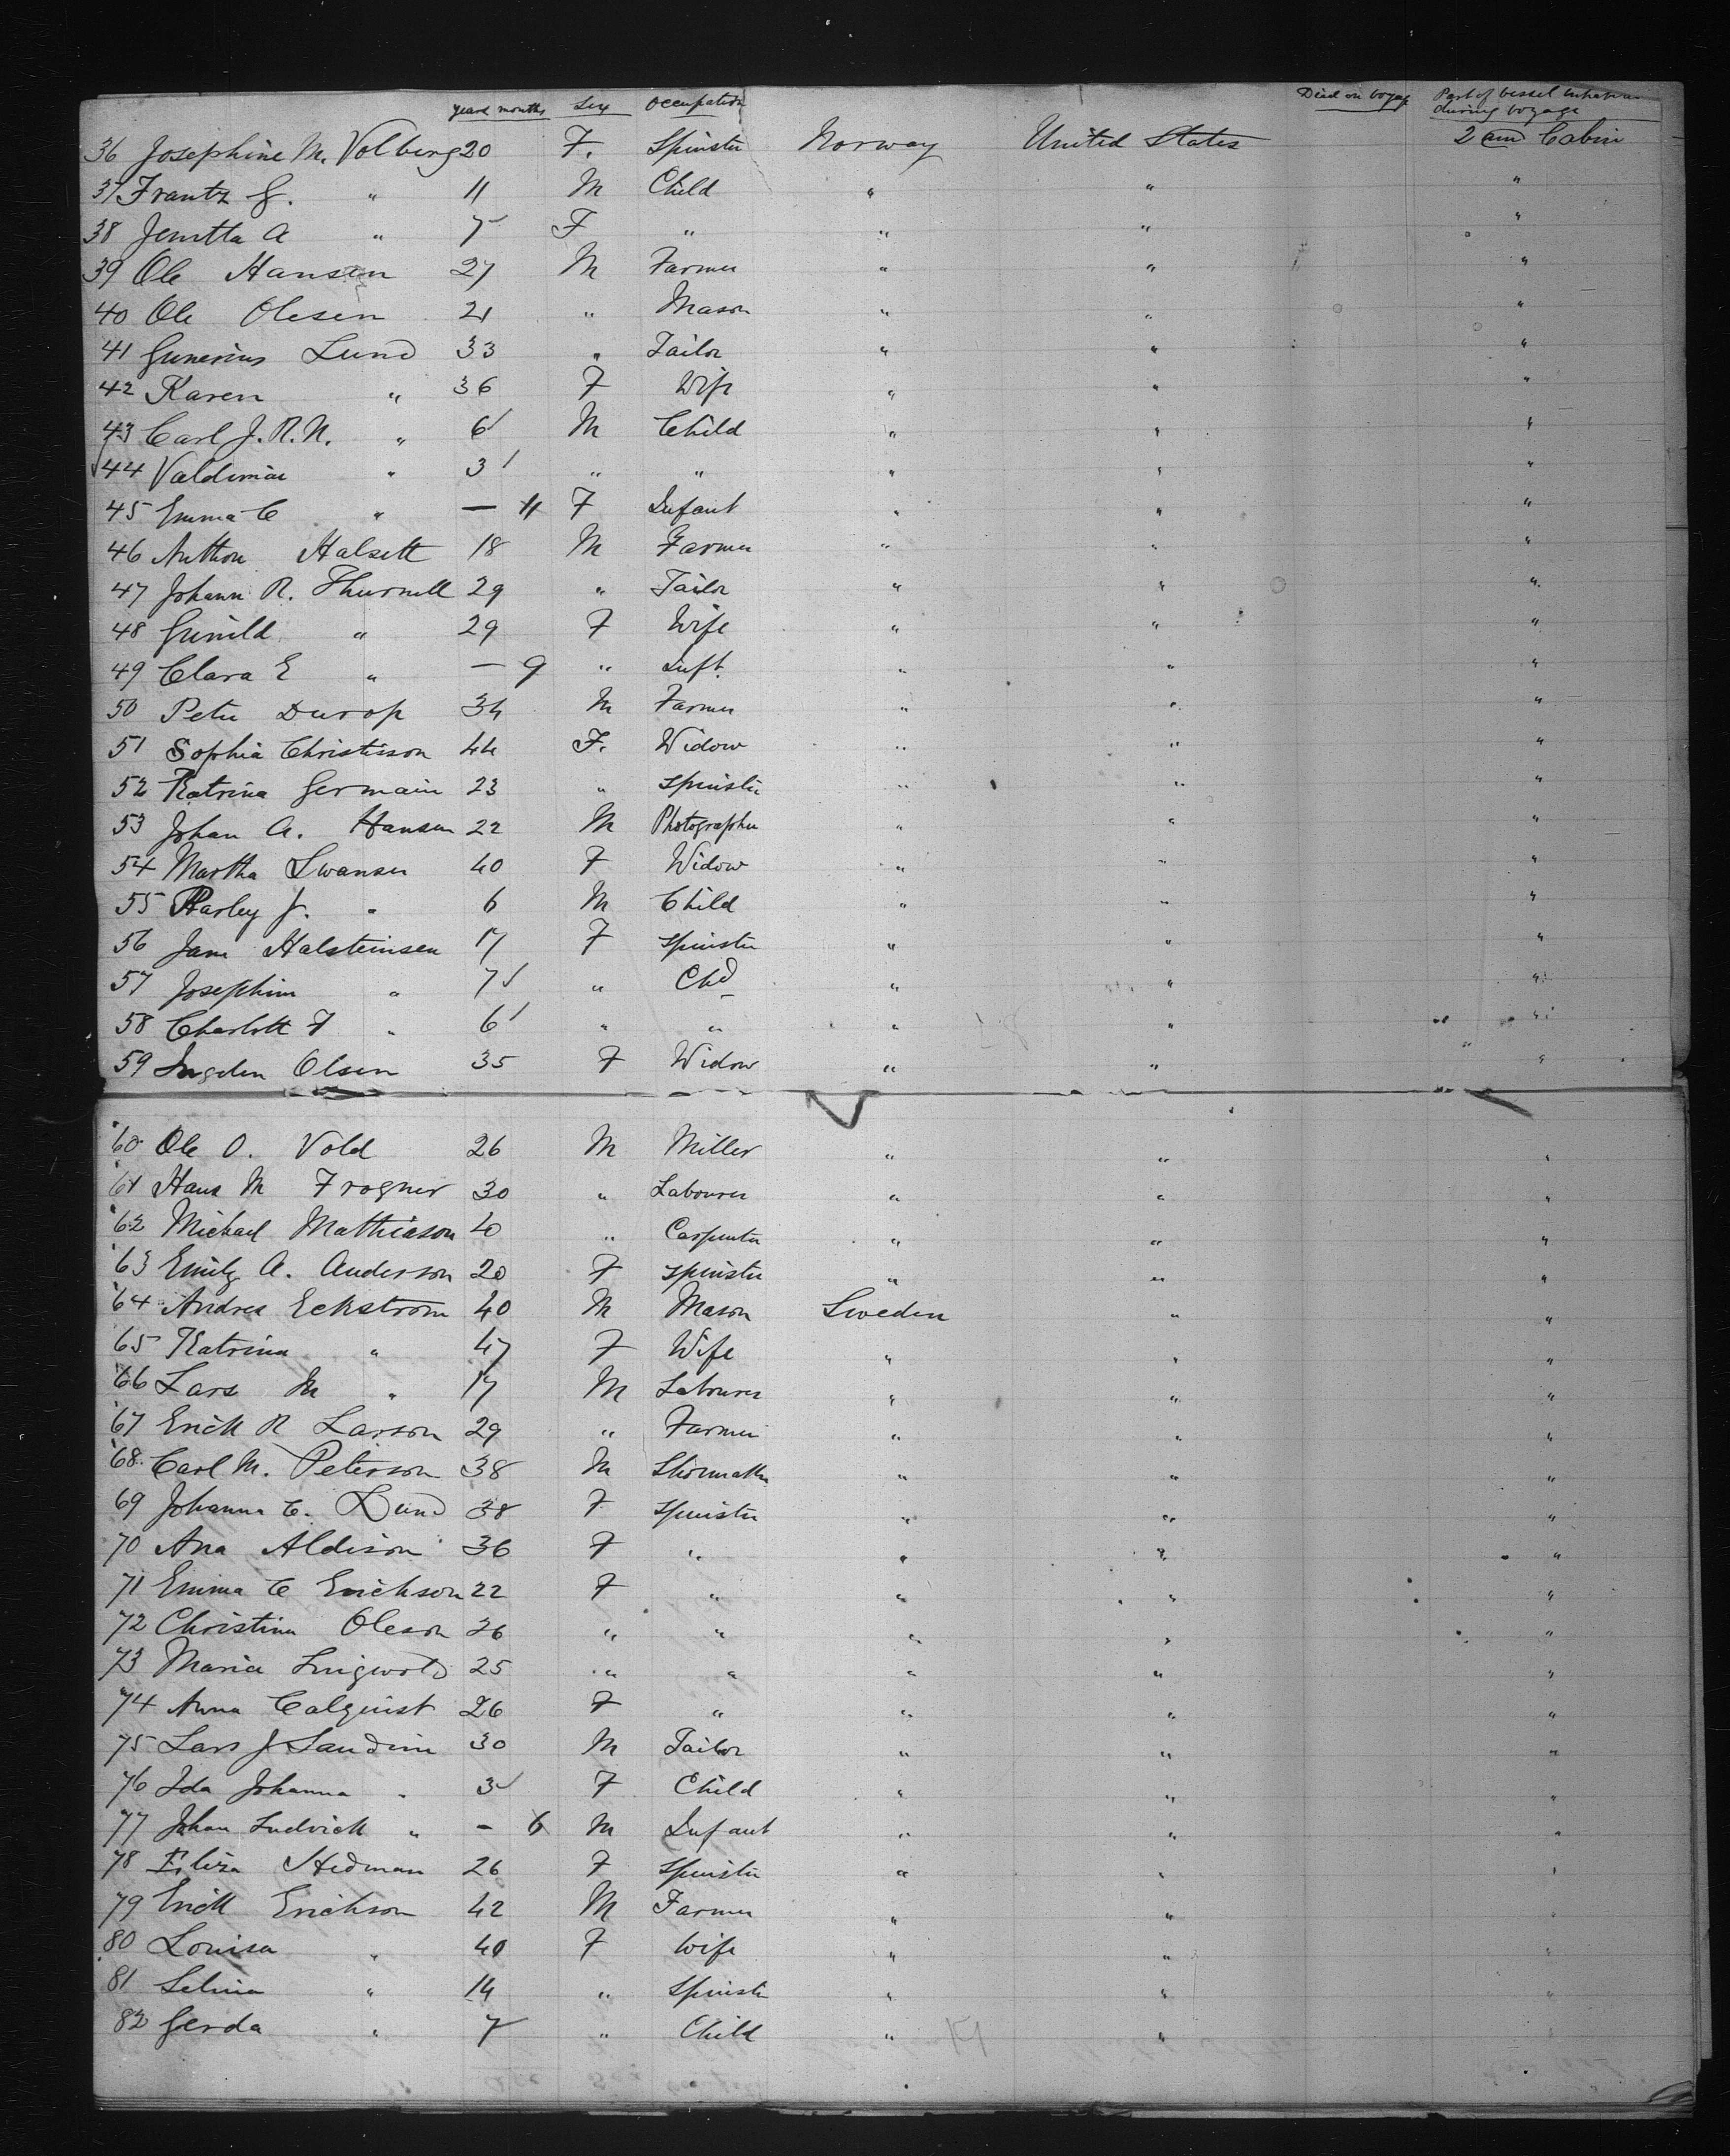 years months Sex Occupation Died on voyage Part of vessel during voyage
36 Josephine M. Volberg 20 F. Spinster Norway United States 2 Cabin
37 Frantz G. " 11 M Child " " "
38 Jenetta A " 7 F " " " "
39 Ole Hansen 27 M Farmer " " "
40 Ole Olesen 21 " Mason " " "
41 Gunerius Lund 33 " Tailor " " "
42 Karen " 36 F Wife " " "
43 Carl J. R. N. " 6 M Child " " "
44 Valdimar " 3 " " " " "
45 Emma C " — 11 F Infant " " "
46 Anthon Halsett 18 M Farmer " " "
47 Johann R. Thurnell 29 " Tailor " " "
48 Gunild " 29 F Wife " " "
49 Clara E " — 9 " Inft. " " "
50 Peter Durop 34 M Farmer " " "
51 Sophia Christisson 44 F. Widow " " "
52 Katrina Germain 23 " Spinster " " "
53 Johan A. Hansen 22 M Photographer " " "
54 Martha Swansen 40 F Widow " " "
55 Harley J. " 6 M Child " " "
56 Jane Halsteinsen 17 F Spinster " " "
57 Josephine " 7 " Chd " " "
58 Charlott F " 6 " " " " "
59 Olsen 35 F Widow " " "
60 Ole O. Vold 26 M Miller " " "
61 Hans M Frogner 30 " Labourer " " "
62 Michael Mathiason 40 " Carpenter " " "
63 Emily A. Anderson 20 F Spinster " " "
64 Andrea Eckstrom 40 M Mason Sweden " "
65 Katrina " 47 F Wife " " "
66 Lars M " 17 M Labourer " " "
67 Erick R Larson 29 " Farmer " " "
68 Carl M. Peterson 38 M Shoemaker " " "
69 Johanna C. Lund 38 F Spinster " " "
70 Ana Aldison 36 F " " " "
71 Emma C Erickson 22 F " " " "
72 Christina Oleson 26 " " " " "
73 Maria 25 " " " " "
74 Anna Calquist 26 F " " " "
75 Lars J Sandin 30 M Tailor " " "
76 Ida Johanna " 3 F Child " " "
77 Johan Ludvick " — 6 M Infant " " "
78 Eliza Hedman 26 F Spinster " " "
79 Erick Erickson 42 M Farmer " " "
80 Louisa " 40 F Wife " " "
81 Selina " 14 " Spinster " " "
82 Gerda " 7 " Child " " "